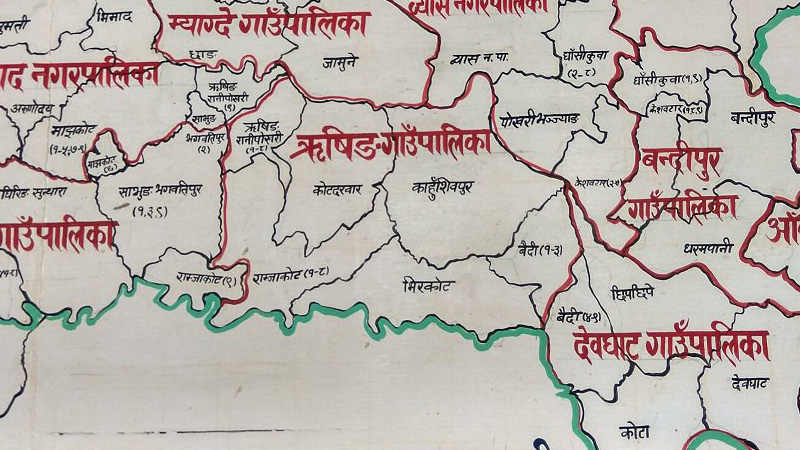 व्यास नगरपालिका
भिमाद
म्याग्दे गाउँपालिका
छाङ
जामुने
व्यास न. पा.
घाँसीकुवा
(२-८)
नगरपालिका
अरुणोदय
ऋषिङ
रानीपोखरी
(९)
घाँसीकुवा (१,९)
केशवटार (१,८,९)
बन्दीपुर
माझकोट
(१-५,७-९)
माझकोट
(६)
साभुङ
भगवतिपुर
(२)
ऋषिङ
रानीपोखरी
(१-८)
ऋषिङ-गाउँपालिका
पोखरी भञ्ज्याङ
बन्दीपुर
गाउँपालिका
साभुङ भगवतिपुर
(१,३,९)
कोटदरवार
काहुँशिवपुर
केशवटार (२-७)
गाउँपालिका
बैदी (१-३)
धरमपानी
राम्जाकोट (९)
राम्जाकोट (१-८)
भिरकोट
छिपछिपे
बैदी (४-९)
देवघाट गाउँपालिका
देवघाट
कोटा